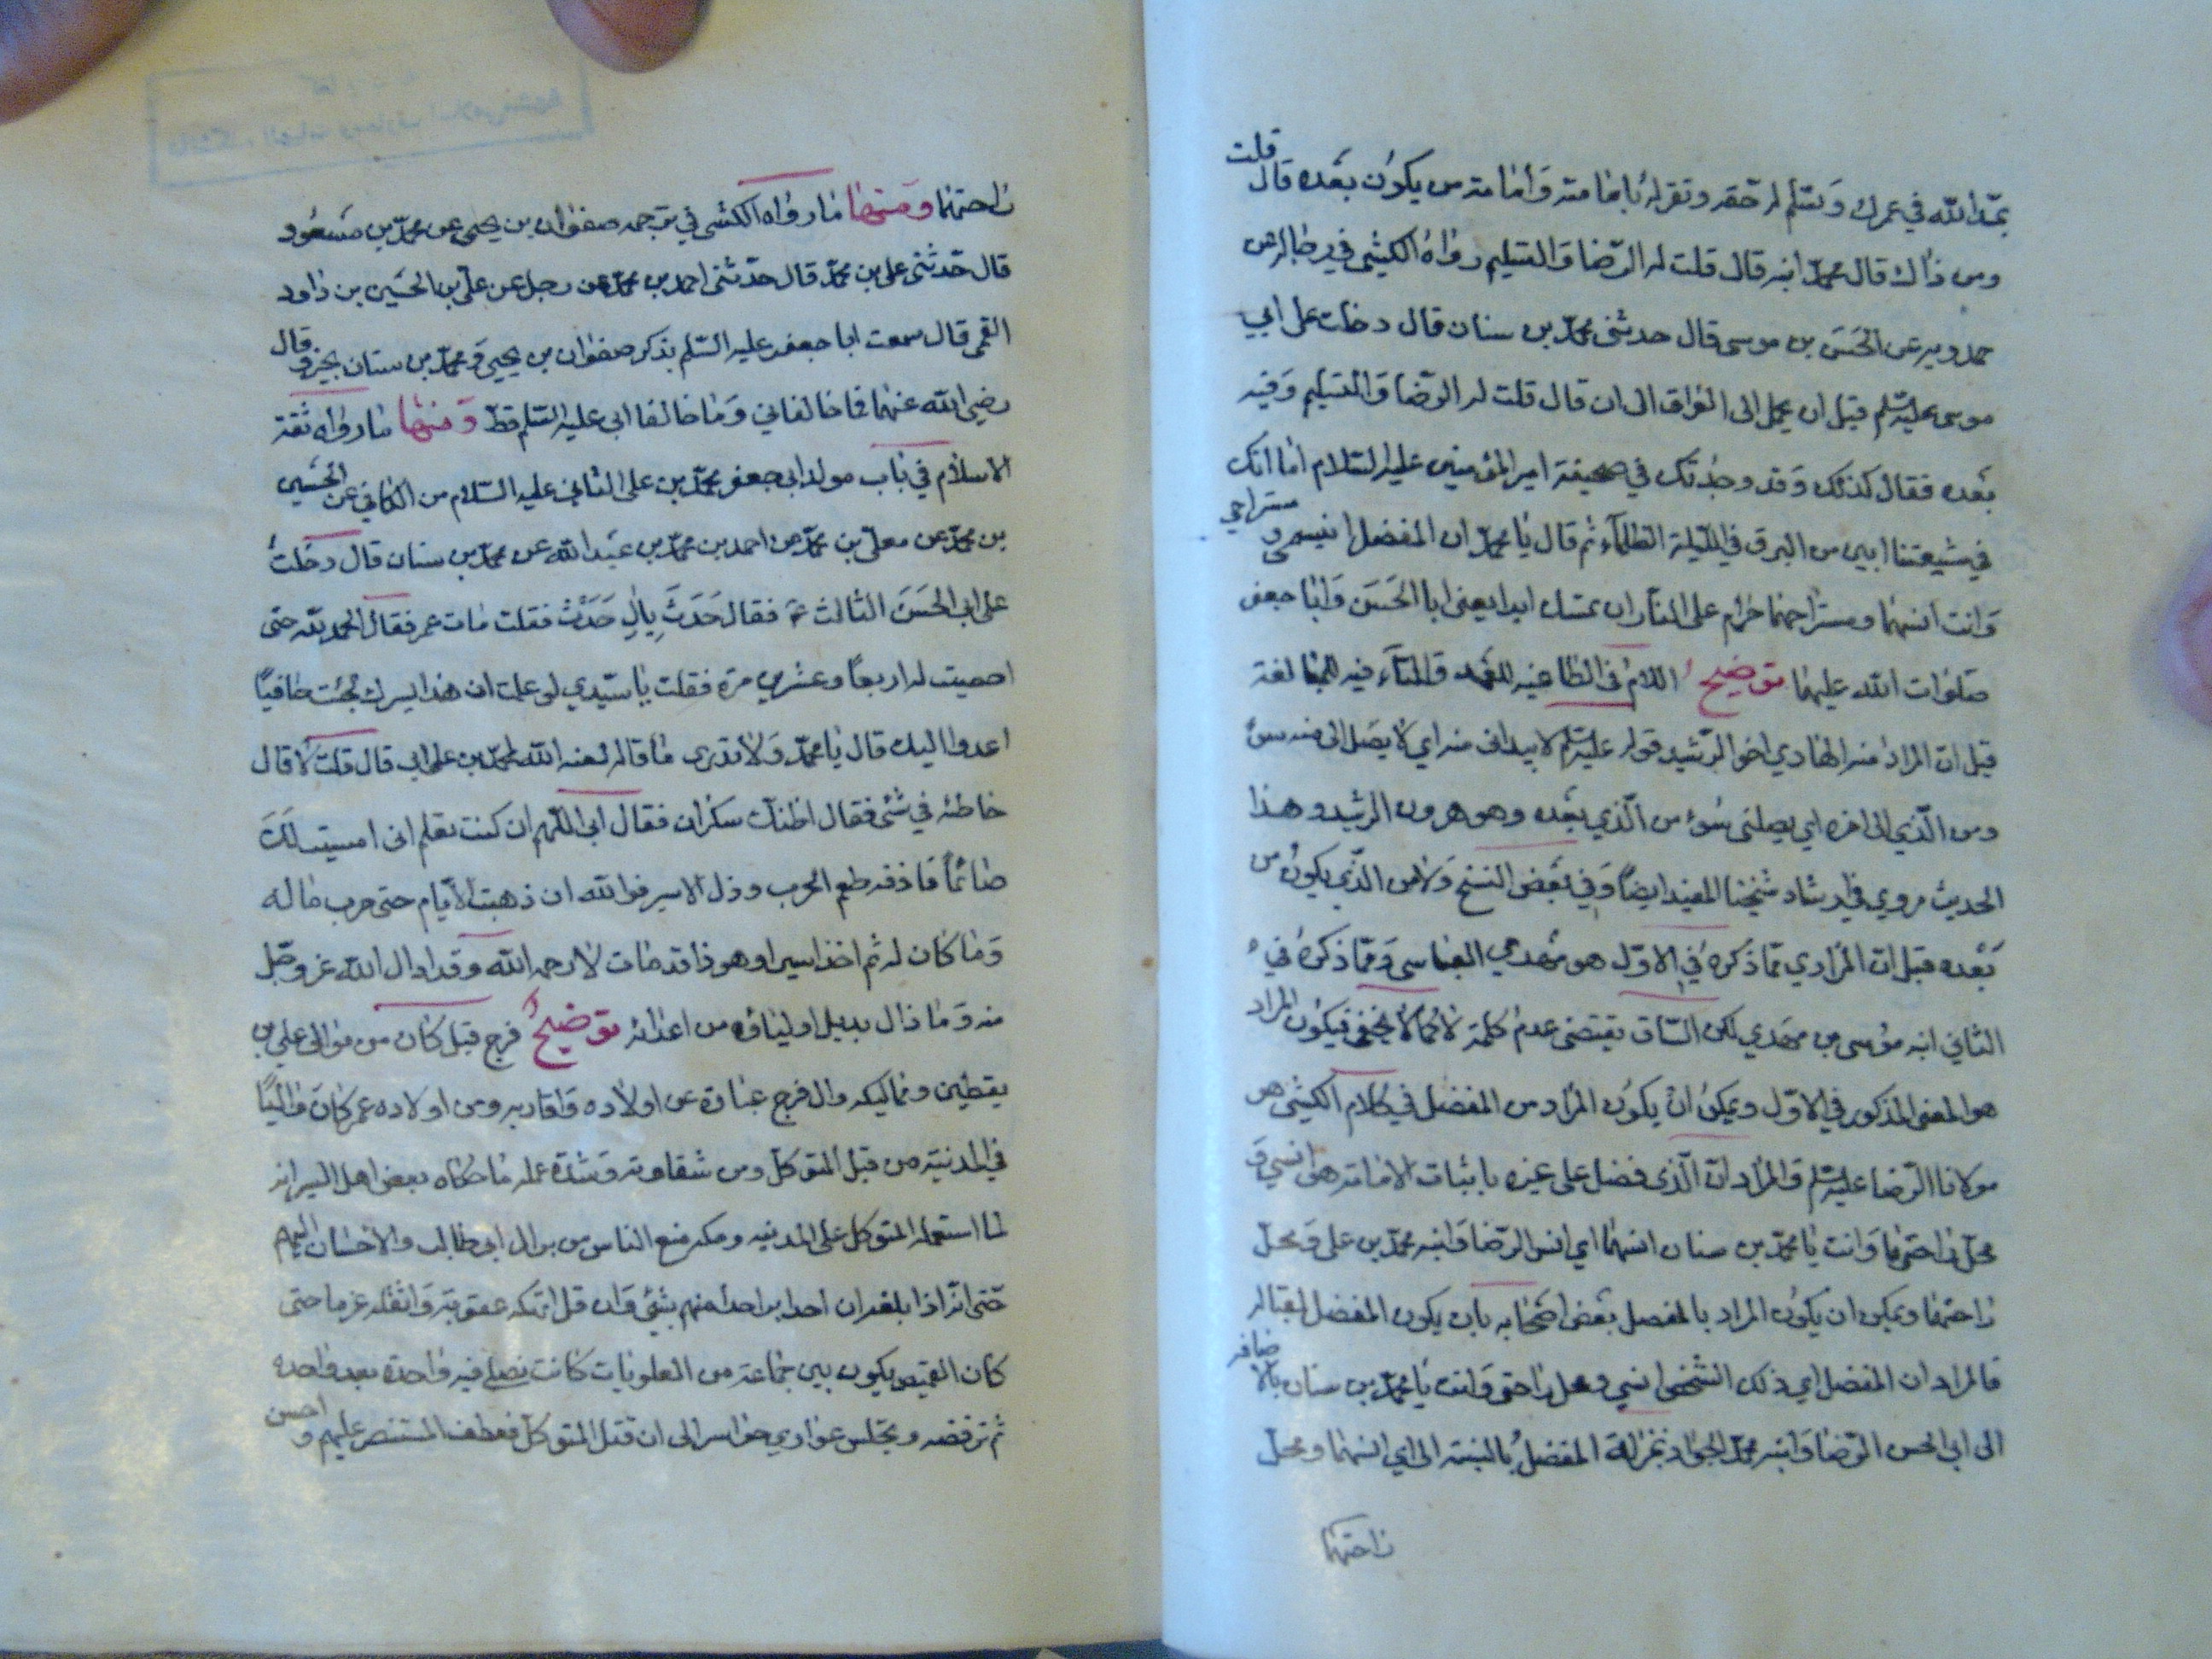 يمد الله في عمرك وتسلم له حقه وتقر له بامامته وامامة من يكون بعده قال قلت
ومن ذاك قال محمد ابنه قال قلت له الرضا والتسليم رواه الكشي في رجاله عن
حمدويه عن الحسن بن موسى قال حدثني محمد بن سنان قال دخلت على ابي
موسى عليه السلم قبل ان يحمل الى العراق الى ان قال قلت له الرضا والتسليم وفيه
بعده فقال كذلك وقد وجدتك في صحيفة امير المؤمنين عليه السلام اما انك
في شيعتنا ابين من البرق في الليلة الظلماء ثم قال يا محمد ان المفضل انيسي و مستراحي
وانت انسهما ومستراحهما حرام على النار ان تمسك ابدا يعني ابا الحسن وابا جعفر
صلوات الله عليهما توضيح اللام في الطاغيه للعهد والتاء فيه للمبالغة
قيل ان المراد منه الهادي اخو الرشيد قوله عليه السلم لا يبدأني منه اي لا يصل الى منه سوء
ومن الذي الى اخره اي يصلني سوء من الذي بعده وهو هرون الرشيد وهذا
الحديث مروي في ارشاد شيخنا المفيد ايضاً وفي بعض النسخ ولا من الذي يكون من
بعده قيل ان المراد مما ذكره في الاول هو مهدي العباسي ومما ذكره في
الثاني ابنه موسى بن مهدي لكن السياق يقتضى عدم كلمة لا كما لا يخفى فيكون المراد
هو المعنى المذكور في الاول ويمكن ان يكون المراد من المفضل في كلام الكشي هو
مولانا الرضا عليه السلم والمراد ان الذي فضل على غيره باثبات الامامة هو انسي و
محل راحتي وانت يا محمد بن سنان انسهما اي انس الرضا وابنه محمد بن علي ومحل
راحتهما ويمكن ان يكون المراد بالمفضل بعض اصحابه بان يكون المفضل
فالمراد ان المفضل اي ذلك الشخص انسي ومحل راحتي وانت يا محمد بن سنان بالاضافة
الى ابي الحسن الرضا وابنه محمد الجواد بمنزلة المفضل بالنسبة الى اي انسهما ومحل
راحتهما
راحتهما ومنها ما رواه الكشي في ترجمه صفوان بن يحيى عن محمد بن مسعود
قال حدثني علي بن محمد قال حدثني احمد بن محمد عن رجل عن علي بن الحسين بن داود
القمي قال سمعت ابا جعفر عليه السلم يذكر صفوان بن يحيى ومحمد بن سنان بخير و قال
رضي الله عنهما فما خالفاني وما خالفا ابي عليه السلم قط ومنها ما رواه ثقة
الاسلام في باب مولد ابي جعفر محمد بن علي الثاني عليه السلام من الكافي عن الحسين
بن محمد عن معلى بن محمد عن احمد بن محمد بن عبد الله عن محمد بن سنان قال دخلت
على ابي الحسن الثالث ع فقال حدث بال حدث فقلت مات عمر فقال الحمد لله حتى
احصيت له اربعا وعشرين مرة فقلت يا سيدي لو علمت ان هذا يسرك لجئت حافياً
اعدوا اليك قال يا محمد ولا تدري ما قاله لعنه الله لمحمد بن علي ابي قال قلت لا قال
خاطبه في شئ فقال اظنك سكران فقال ابي اللهم ان كنت تعلم اني امسيت لك
صائماً فاذقه طعم الحرب وذل الاسر فوالله ان ذهبت الايام حتى حرب ماله
وما كان له ثم اخذ اسيرا وهو ذا قد مات لا رحمه الله وقد ادال الله عز وجل
منه وما زال يديل اوليائه من اعدائه توضيح فرج قيل كان من موالي علي بن
يقطين ومماليكه وال فرج عبارة عن اولاده واقاربه ومن اولاده عمر كان والياً
في المدينة من قبل المتوكل ومن شقاوته وشدة عمله ما حكاه بعض اهل السير انه
لما استعمله المتوكل على المدينه ومكه منع الناس من بر ال ابي طالب والاحسان اليهم
حتى انه اذا بلغه ان احدا بر احدا منهم بشئ وان قل انهكه عقوبة واثقله غرما حتى
كان القميص يكون بين جماعة من العلويات كانت تصلى فيه واحدة بعد واحده
ثم ترفعه ويجلس عواري حواسر الى ان قتل المتوكل فعطف المستنصر عليهم و احسن